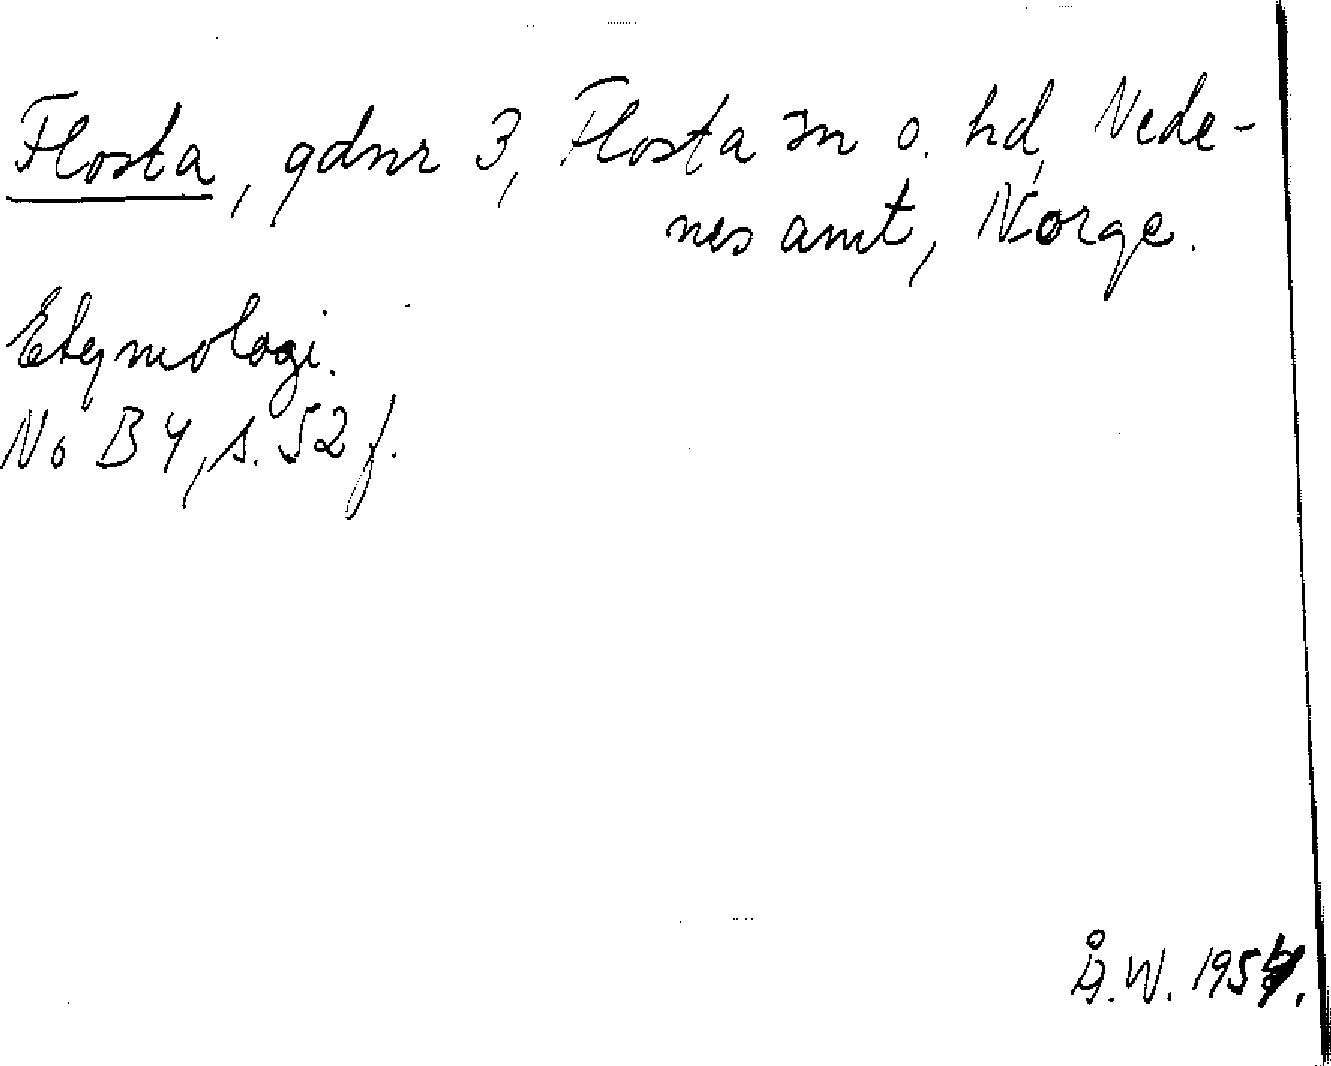 Flosta, gdnr 3, Flosta sn o. hd, Nede-
nes amt, Norge.
Etymologi.
NoB 4, s. 52 f.
Å.W. 195